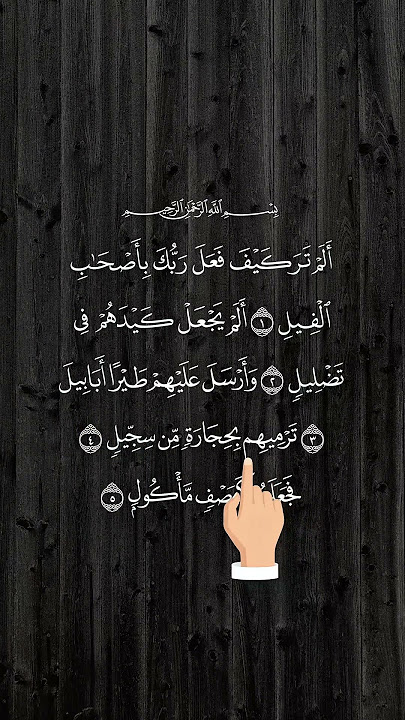 بِسْمِ ٱللَّهِ ٱلرَّحْمَٰنِ ٱلرَّحِيمِ
أَلَمْ تَرَ كَيْفَ فَعَلَ رَبُّكَ بِأَصْحَٰبِ
ٱلْفِيلِ ١ أَلَمْ يَجْعَلْ كَيْدَهُمْ فِى
تَضْلِيلٍ ٢ وَأَرْسَلَ عَلَيْهِمْ طَيْرًا أَبَابِيلَ
٣ تَرْمِيهِم بِحِجَارَةٍ مِّن سِجِّيلٍ ٤
مَّأْكُولٍۭ ٥